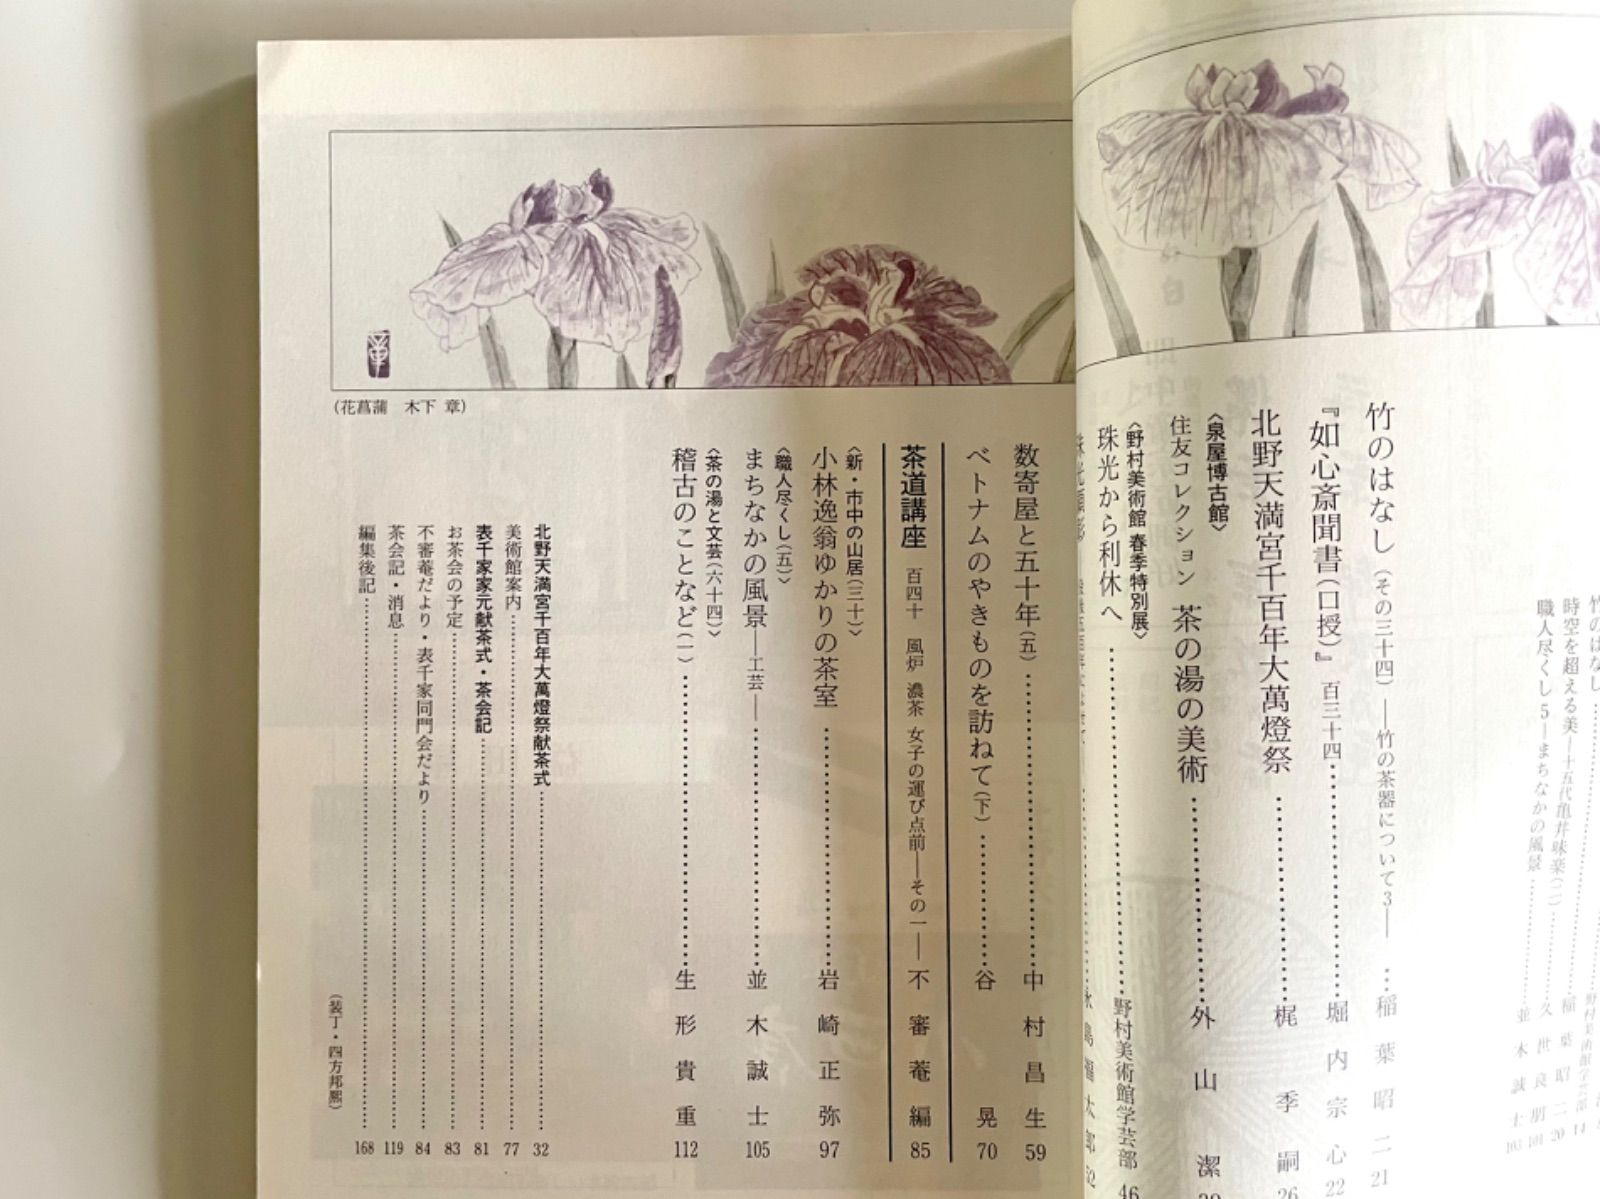 竹のはなし
時空を超える美―十五代亀井味楽(二) 稲葉昭二 20
職人尽くし5―まちなかの風景 並木誠士 103
竹のはなし(その三十四)―竹の茶器について3― 稲葉昭二 21
『如心斎聞書(口授)』百三十四 堀内宗心 22
北野天満宮千百年大萬燈祭 梶季嗣 26
〈泉屋博古館〉
住友コレクション 茶の湯の美術 外山潔
〈野村美術館 春季特別展〉
珠光から利休へ 野村美術館学芸部 46
数寄屋と五十年(五) 中村昌生 59
ベトナムのやきものを訪ねて(下) 谷晃 70
茶道講座 百四十 風炉 濃茶 女子の運び点前―その一― 不審菴編 85
〈新・市中の山居(三十)〉
小林逸翁ゆかりの茶室 岩崎正弥 97
〈職人尽くし(五)〉
まちなかの風景―工芸― 並木誠士 105
〈茶の湯と文芸(六十四)〉
稽古のことなど(一) 生形貴重 112
北野天満宮千百年大萬燈祭献茶式 32
美術館案内 77
表千家家元献茶式・茶会記 81
お茶会の予定 83
不審菴だより・表千家同門会だより 84
茶会記・消息 119
編集後記 168
(装丁・四方邦熈)
(花菖蒲 木下 章)
章